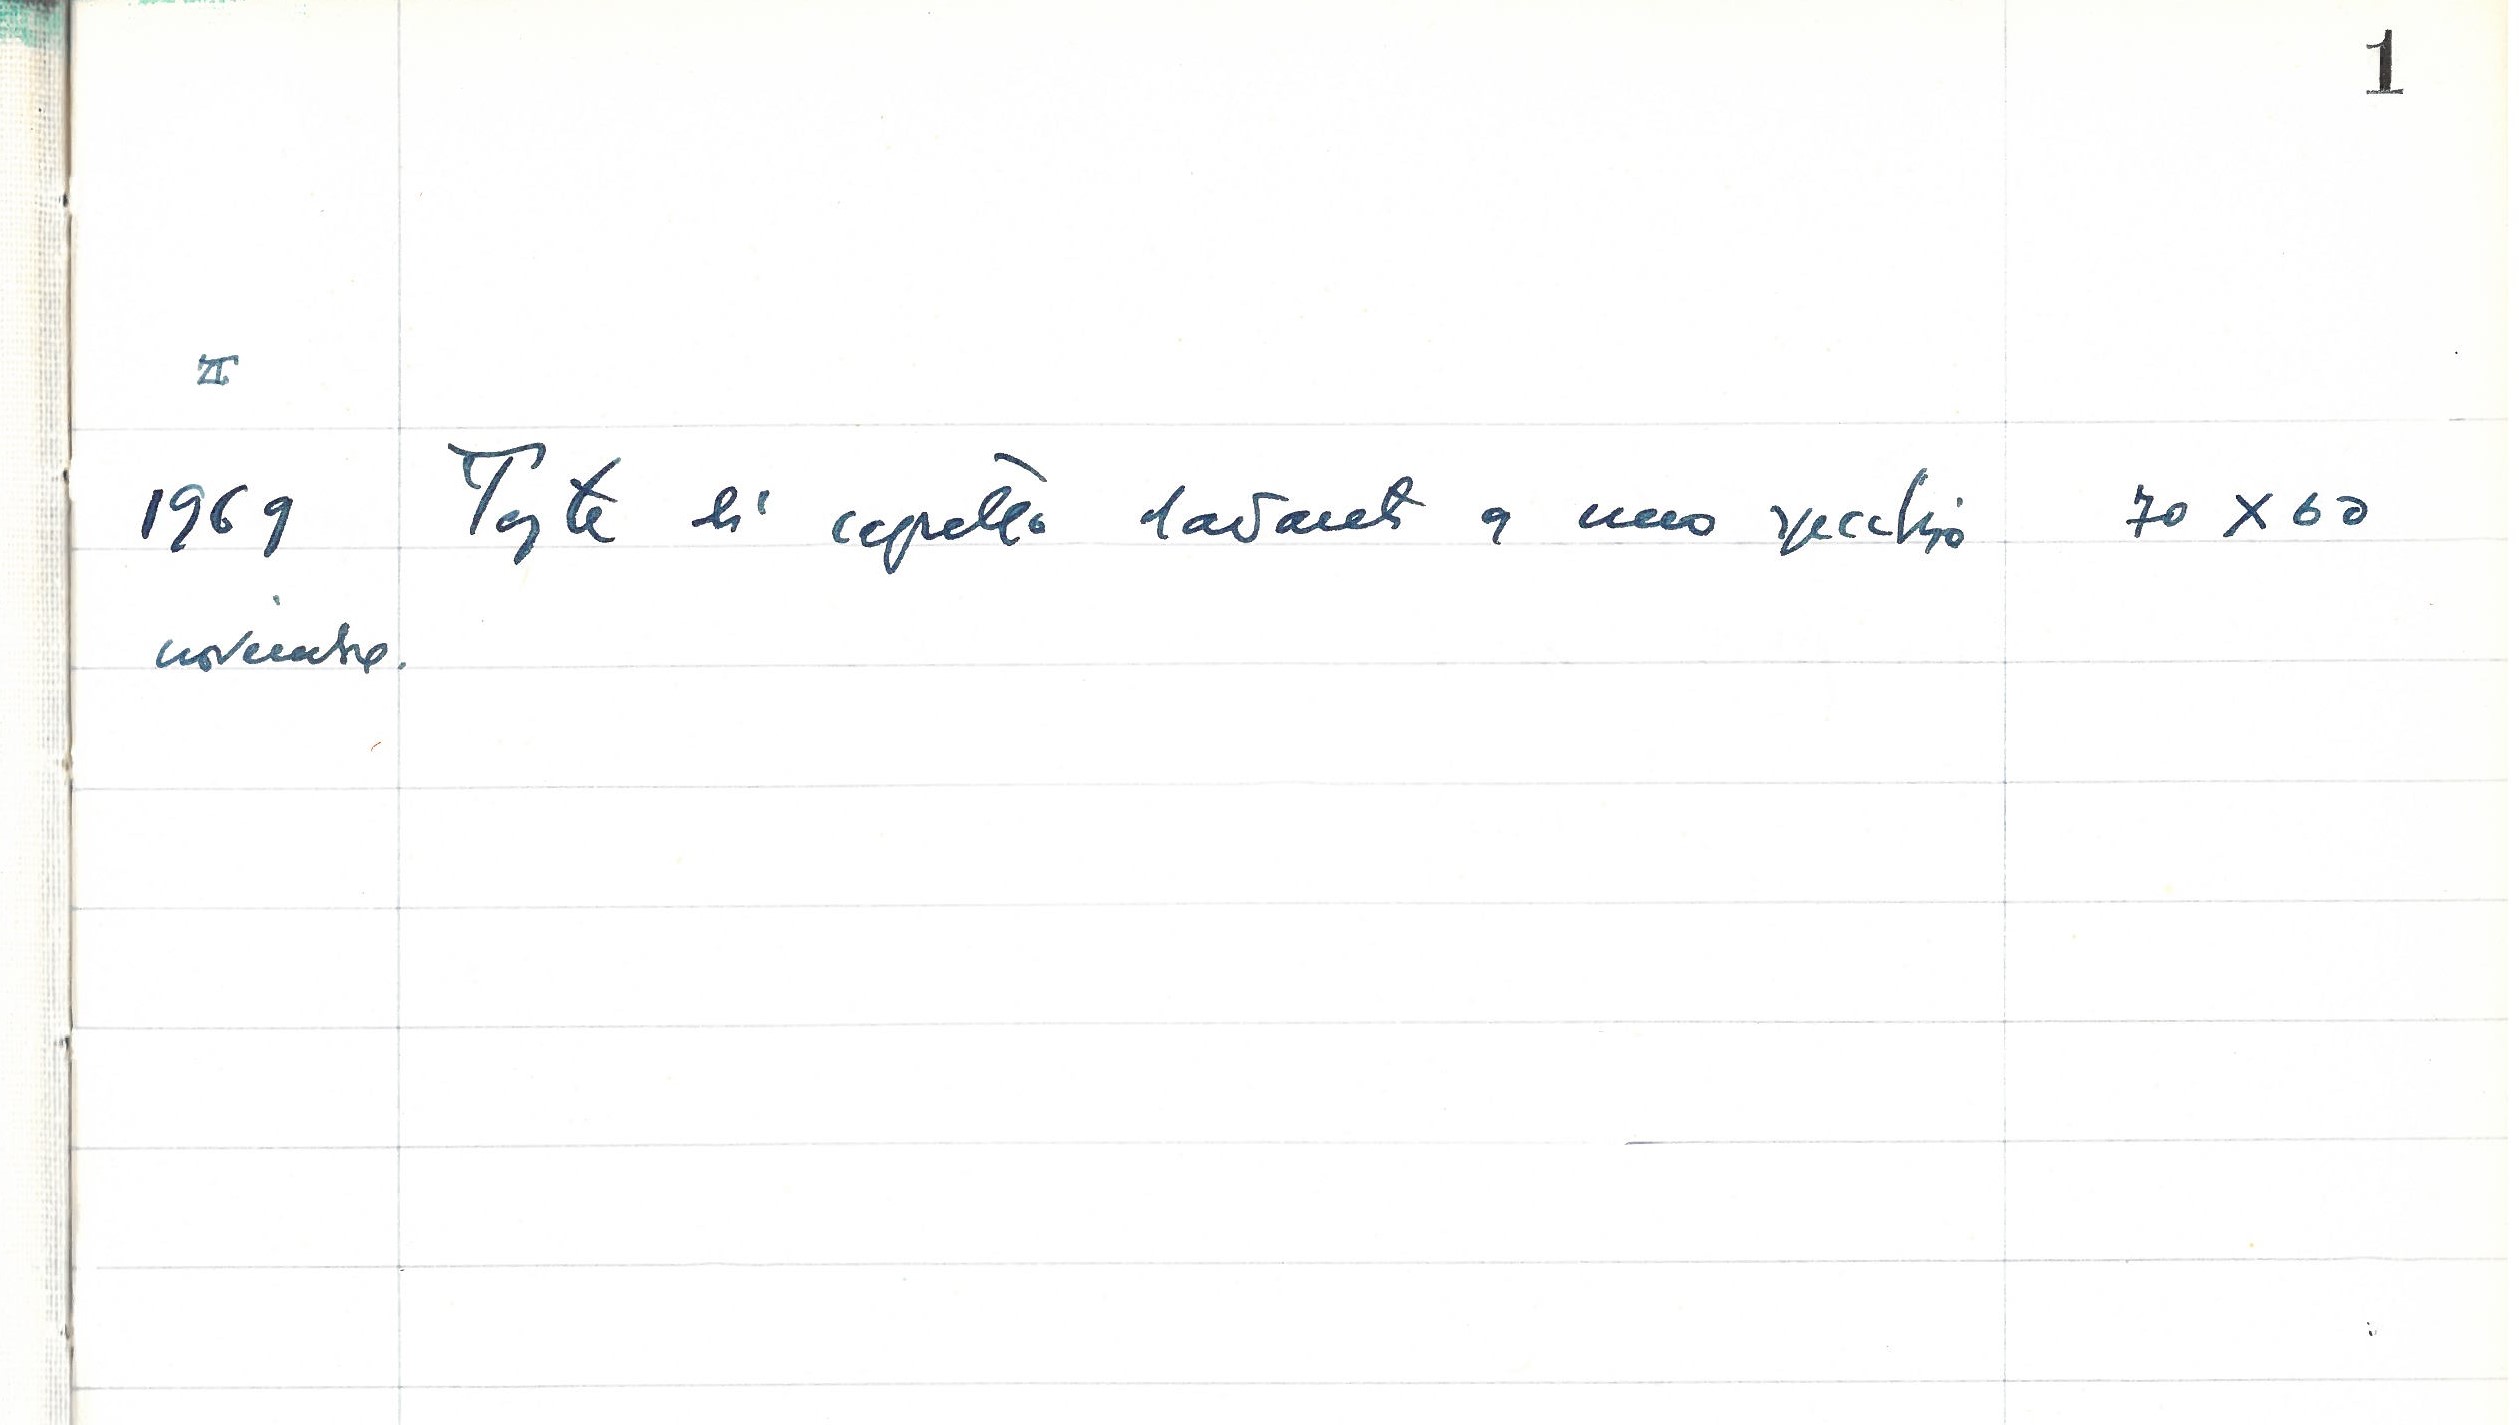 1
II
1969 Teste di capretto davanti a uno specchio 70 X 60
novembre.